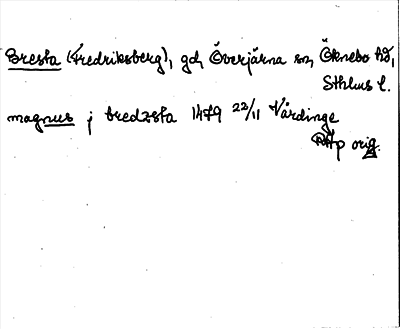 Bresta (Fredriksberg), gd, Överjärna sn, Öknebo hd,
Sthlms l.
magnus j bredzsta 1479 22/11 Vårdinge
RAp orig.